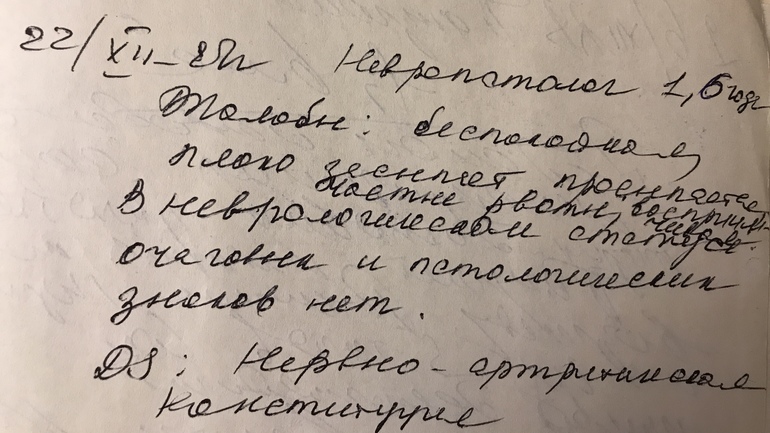 22/XII-85г Невропатолог 1,5 года
Жалобы: беспокойная,
плохо засыпает просыпается
частые рвоты,
В неврологическом статусе
очаговых и патологических
знаков нет.
DS: Нервно-артритическая
конституция